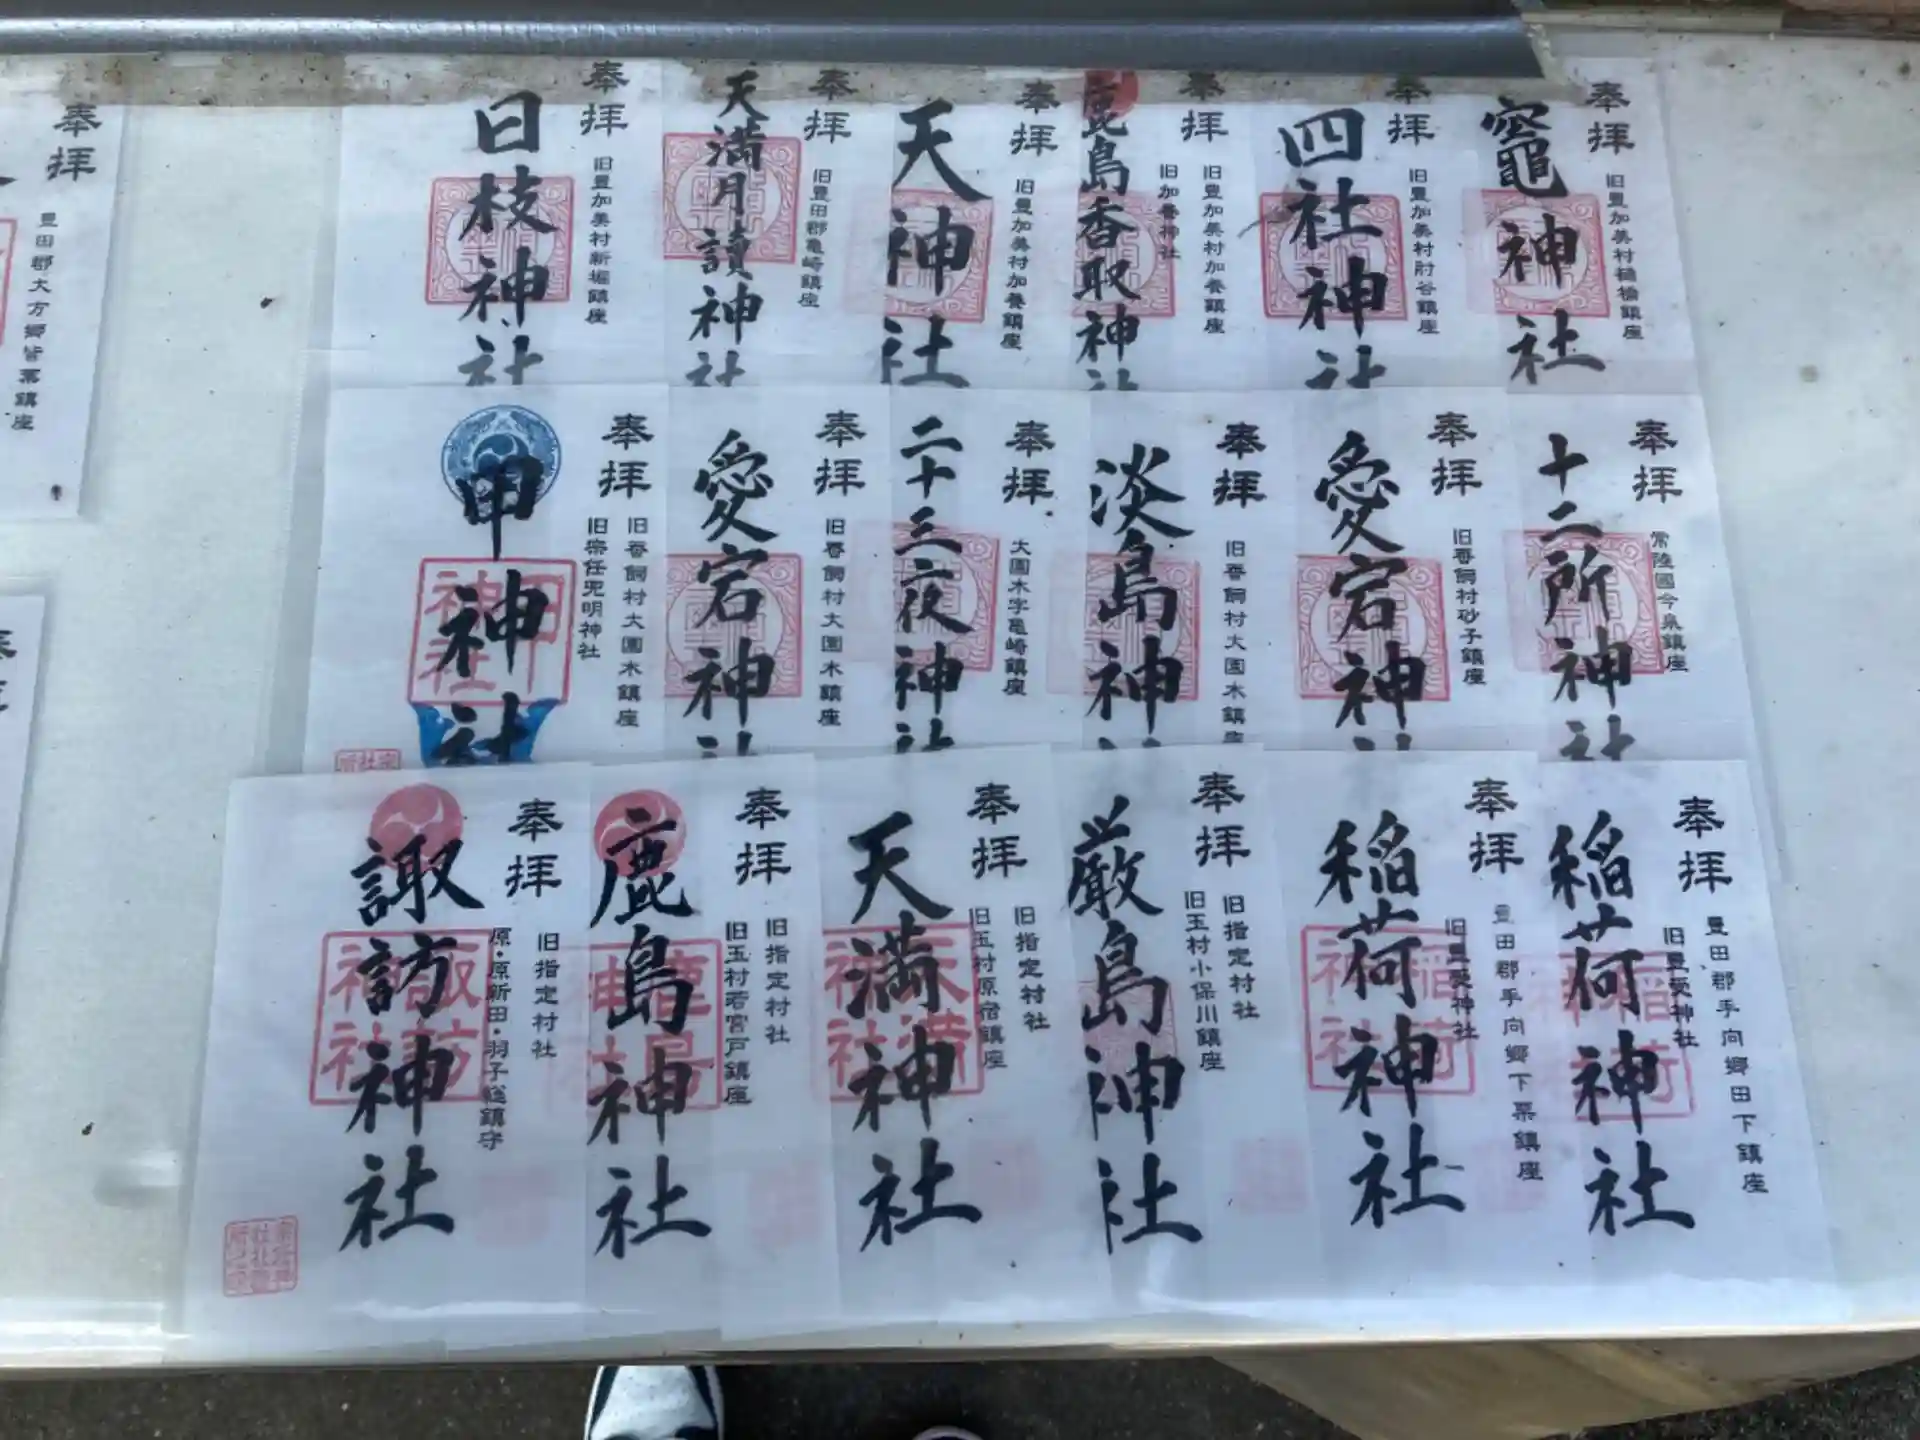 奉拝
旧豊加美村樋橋鎮座
竈神社
奉拝
旧豊加美村肘谷鎮座
四社神社
奉拝
旧豊加美村加養鎮座
旧加養神社
鹿島香取神社
奉拝
旧豊加美村加養鎮座
天神社
奉拝
旧豊田郡亀崎鎮座
天満月読神社
奉拝
旧豊加美村新堀鎮座
日枝神社
奉拝
豊田郡大方郷皆葉鎮座
奉拝
常陸國今泉鎮座
十二所神社
奉拝
旧蚕飼村砂子鎮座
愛宕神社
奉拝
旧蚕飼村大園木鎮座
淡島神社
奉拝
大園木字亀崎鎮座
二十三夜神社
奉拝
旧蚕飼村大園木鎮座
愛宕神社
奉拝
旧蚕飼村大園木鎮座
旧宗任兜明神社
甲神社
奉拝
豊田郡手向郷田下鎮座
旧豊受神社
稲荷神社
奉拝
豊田郡手向郷下栗鎮座
旧豊受神社
稲荷神社
奉拝
旧指定村社
旧玉村小保川鎮座
厳島神社
奉拝
旧指定村社
旧玉村原宿鎮座
天満神社
奉拝
旧指定村社
旧玉村若宮戸鎮座
鹿島神社
奉拝
旧指定村社
原・原新田・羽子総鎮守
諏訪神社